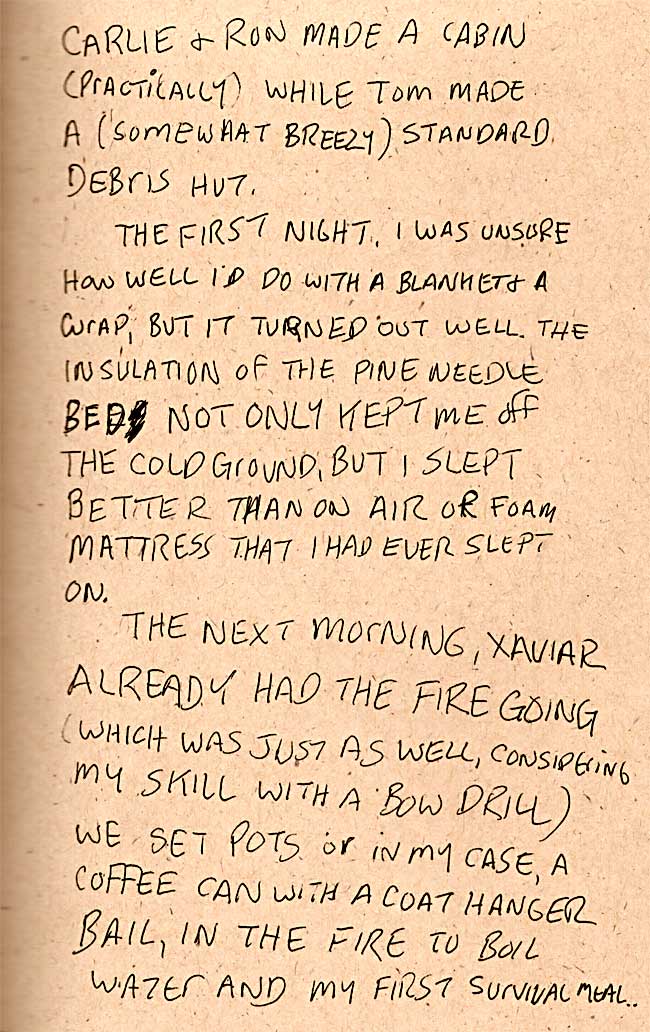 CARLIE & RON MADE A CABIN
(PrACTiCALLY) WHILE Tom MADE
A (SOMEWHAT BREEZY) STANDARD
DEBrIS HUT.
THE FIRST NIGHT, I WAS UNSURE
HOW WELL I'D DO WITH A BLANKET & A
WrAP, BUT IT TURNED OUT WELL. THE
INSULATION OF THE PINE NEEDLE
BED NOT ONLY KEPT ME off
THE COLD GrOUND, BUT I SLEPT
BETTER THAN ON AIR OR FOAM
MATTRESS THAT I HAD EVER SLEPT
ON.
THE NEXT MOrNING, XAVIAR
ALREADY HAD THE FIRE GOING
(WHICH WAS JUST AS WELL, CONSIDEriNG
MY SKILL WITH A BOW DRILL)
WE SET POTS or IN MY CASE, A
COFFEE CAN WITH A COAT HANGER
BAIL, IN THE FIRE TO BOIL
WATEr AND MY FIRST SURVIVAL MEAL..